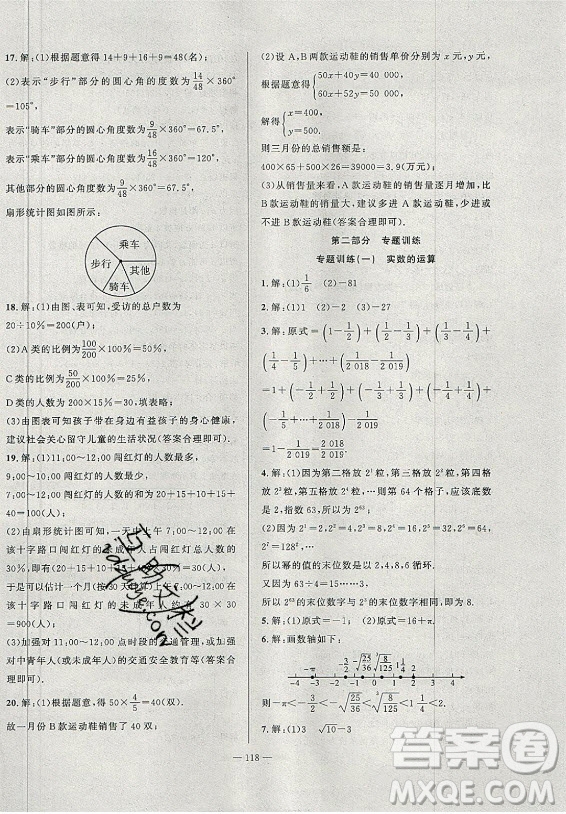 17.解:(1)根据题意得 14+9+16+9=48(名);
(2)表示“步行”部分的圆心角的度数为 14/48 ×360°
=105°,
表示“骑车”部分的圆心角度数为 9/48×360°=67.5°,
表示“乘车”部分的圆心角度数为 16/48×360°=120°,
其他部分的圆心角度数为 9/48×360°=67.5°,
扇形统计图如图所示:
乘车
步行
其他
骑车
18.解:(1)由图、表可知,受访的总户数为
20÷10%=200(户);
(2)A类的比例为 100/200×100%=50%,
C类的比例为 50/200×100%=25%,
D类的人数为 200×15%=30,填表略;
(3)由图表可知孩子带在身边有益孩子的身心健康,
建议社会关心留守儿童的生活状况(答案合理即可).
19.解:(1)7:00~12:00 闯红灯的人数最多,
9:00~10:00 闯红灯的人数最少,
7:00~12:00 闯红灯的人数为 20+15+10+15+
40=100(人);
(2)由扇形统计图可知,一天中午 7:00~12:00 在
该十字路口闯红灯的未成年人占闯红灯总人数的
30%,即 100×30%=30(人),
于是可以估计一个月(按 30 天计算)上午 7:00~
12:00 在该十字路口闯红灯的未成年人约有 30×30
=900(人);
(3)加强对 11:00~12:00 点时段的交通管理,或加强
对中青年人(或未成年人)的交通安全教育等(答案
合理即可).
20.解:(1)根据题意,得 50×4/5=40(双).
故一月份 B 款运动鞋销售了 40 双;
(2)设 A,B 两款运动鞋的销售单价分别为 x 元,y 元,
根据题意得{50x+40y=40 000,
60x+52y=50 000,
解得{x=400,
y=500.
则三月份的总销售额是:
400×65+500×26=39000=3.9(万元);
(3)从销售量来看,A 款运动鞋销售量逐月增加,比
B 款运动鞋的销售量大,建议多进 A 款运动鞋,少进或
不进 B 款运动鞋(答案合理即可).
第二部分 专题训练
专题训练(一) 实数的运算
1.解:(1)1/6 (2)-81
2.解:(1)1 (2)-2 (3)-2
3.解:原式=(1-1/2)+(1/2-1/3)+(1/3-1/4)+
(1/4-1/5)+…+(1/2 018-1/2 019)
=1+(-1/2+1/2)+(-1/3+1/3)+(-1/4+1/4)+
(-1/5+1/5)+…+(-1/2 018+1/2 018)-1/2 019
=1-1/2 019=2 018/2 019.
4.解:(1)因为第二格放 2¹ 粒,第三格放 2² 粒,第四格放
2³ 粒,第五格放 2⁴ 粒,…,所以第 64 个格子应放
2⁶³ 粒.
(2)因为 2¹=2,2²=4,2³=8,2⁴=16,2⁵=32,2⁶
=64,…,
所以幂的值的末位数字以 2,4,8,6 循环.
又因为 63÷4=15……3,
所以 2⁶³ 的末位数字与 2³ 的末位数字相同,为 8.
5.解:(1)原式=2.(2)原式=16+π.
6.解:画数轴如下:
-π -√(25/36) ∛(8/125) √2
-4 -3 -2 -1 0 1 2 3 4
则-π<-√(25/36)<∛(8/125)<√2.
7.解:(1)3 √10-3
— 118 —
答案圈
MXQE.COM